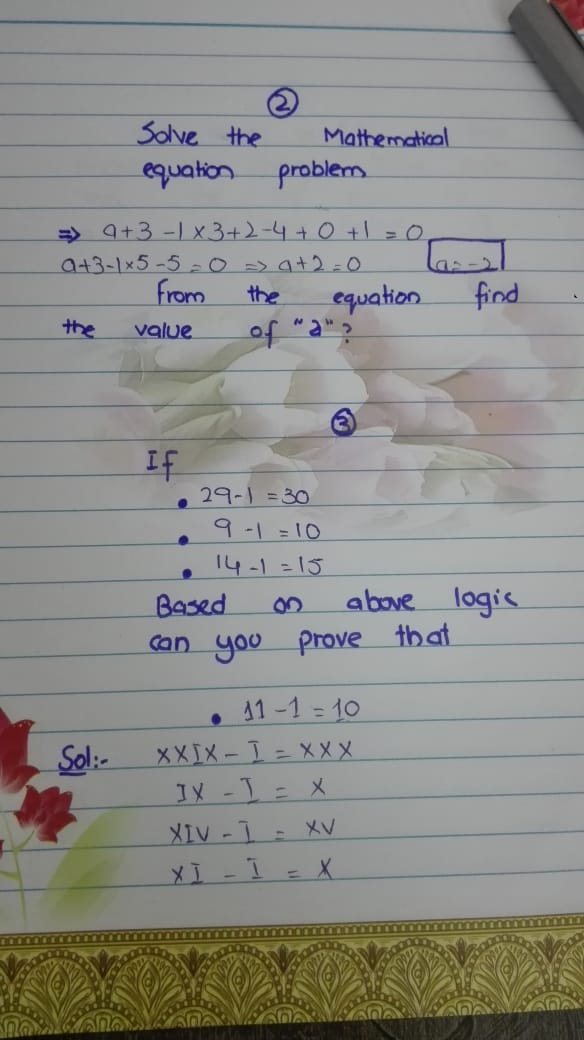 2
Solve the Mathematical
equation problem
⇒ a+3-1×3+2-4+0+1=0
a+3-1×5-5=0 ⇒ a+2=0 a=-2
From the equation find
the value of "a"?
3
If
• 29-1=30
• 9-1=10
• 14-1=15
Based on above logic
can you prove that
• 11-1=10
Sol:- XXIX - I = XXX
IX - I = X
XIV - I = XV
XI - I = X